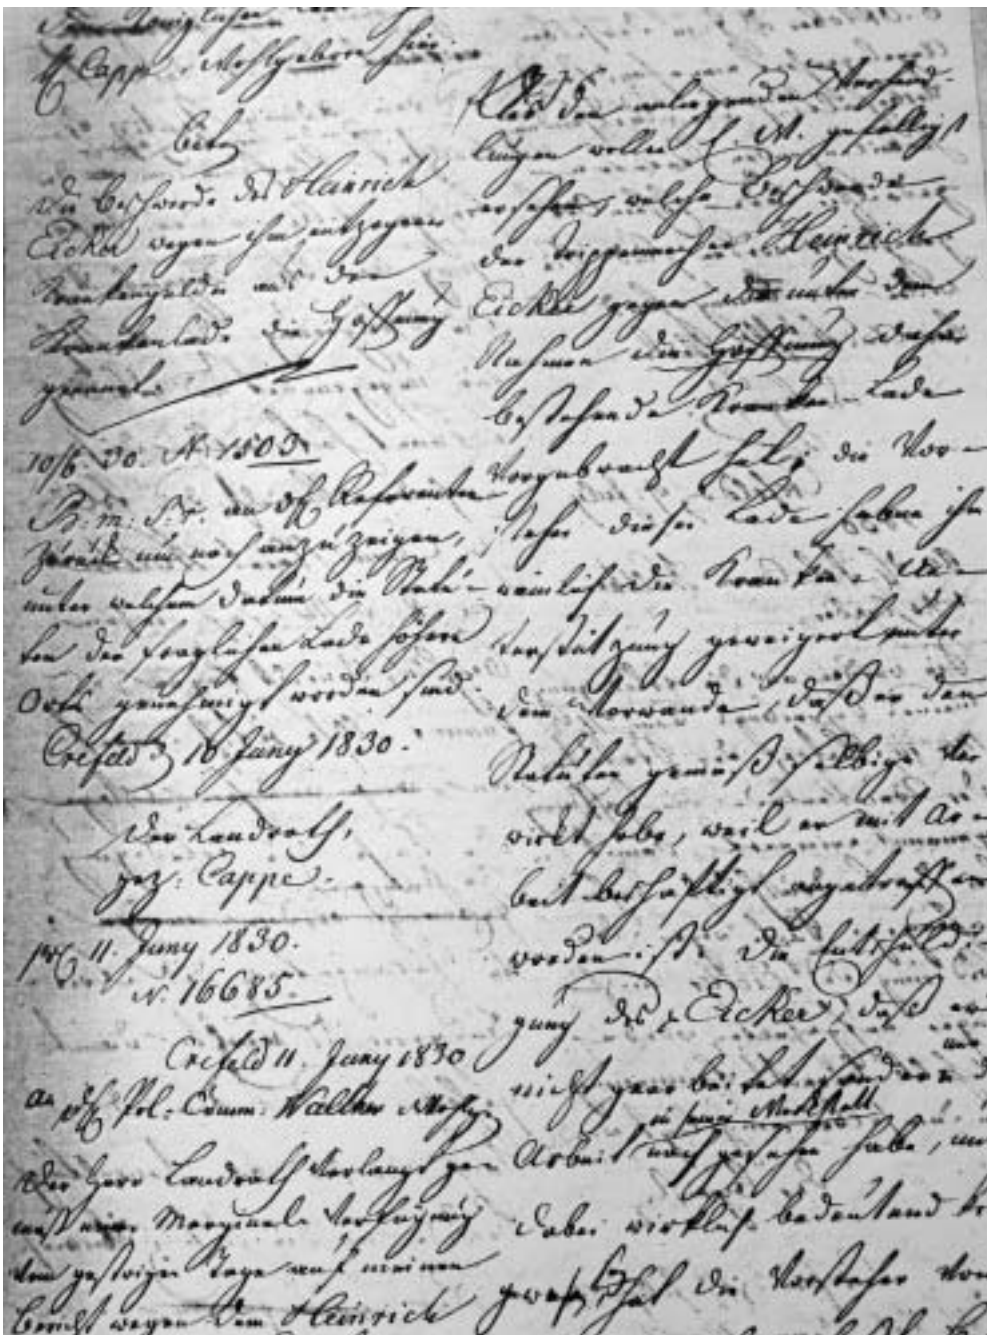 Königlichen
H. Cappe, Wohlgeboren hier.
betr.
Die Beschwerde des Heinrich
Eicker wegen ihm entzogenen
Krankengelder aus der
Krankenlade die Hoffnung
genannt.
10/6. 30. N. 1503.
B. m. S. r. an H. Referenten
zurück um noch anzuzeigen,
unter welchem Datum die Statu-
ten der fraglichen Lade höhern
Orts genehmigt worden sind.
Crefeld 10 Juny 1830.
Der Landrath,
gez. Cappe.
11. Juny 1830.
N. 16685.
Crefeld 11. Juny 1830
An H. Pol. Comm. Walther Wohlg.
Der Herr Landrath verlangt ge-
mäß Marginal-Verfügung
vom gestrigen Tage auf meinen
Bericht wegen dem Heinrich
Aus den anliegenden Verhand-
lungen wollen gefälligst
ersehen, welche Beschwerde
der Trippenmacher Heinrich
Eicker gegen die unter dem
Nahmen die Hoffnung dahier
bestehende Kranken-Lade
vorgebracht hat; die Vor-
steher dieser Lade haben ihm
nämlich die Kranken-Un-
terstützung geweigert unter
dem Vorwande, daß er den
Statuten gemäß selbige ver-
wirkt habe, weil er mit Ar-
beit beschäftigt angetroffen
worden ist. Die Entschuldi-
gung des Eicker, daß er
nicht gearbeitet, sondern d
in seiner Werkstatt
Arbeit nachgesehen habe, und
dabei wirklich bedeutend kr
gewesen, hat die Vorsteher von